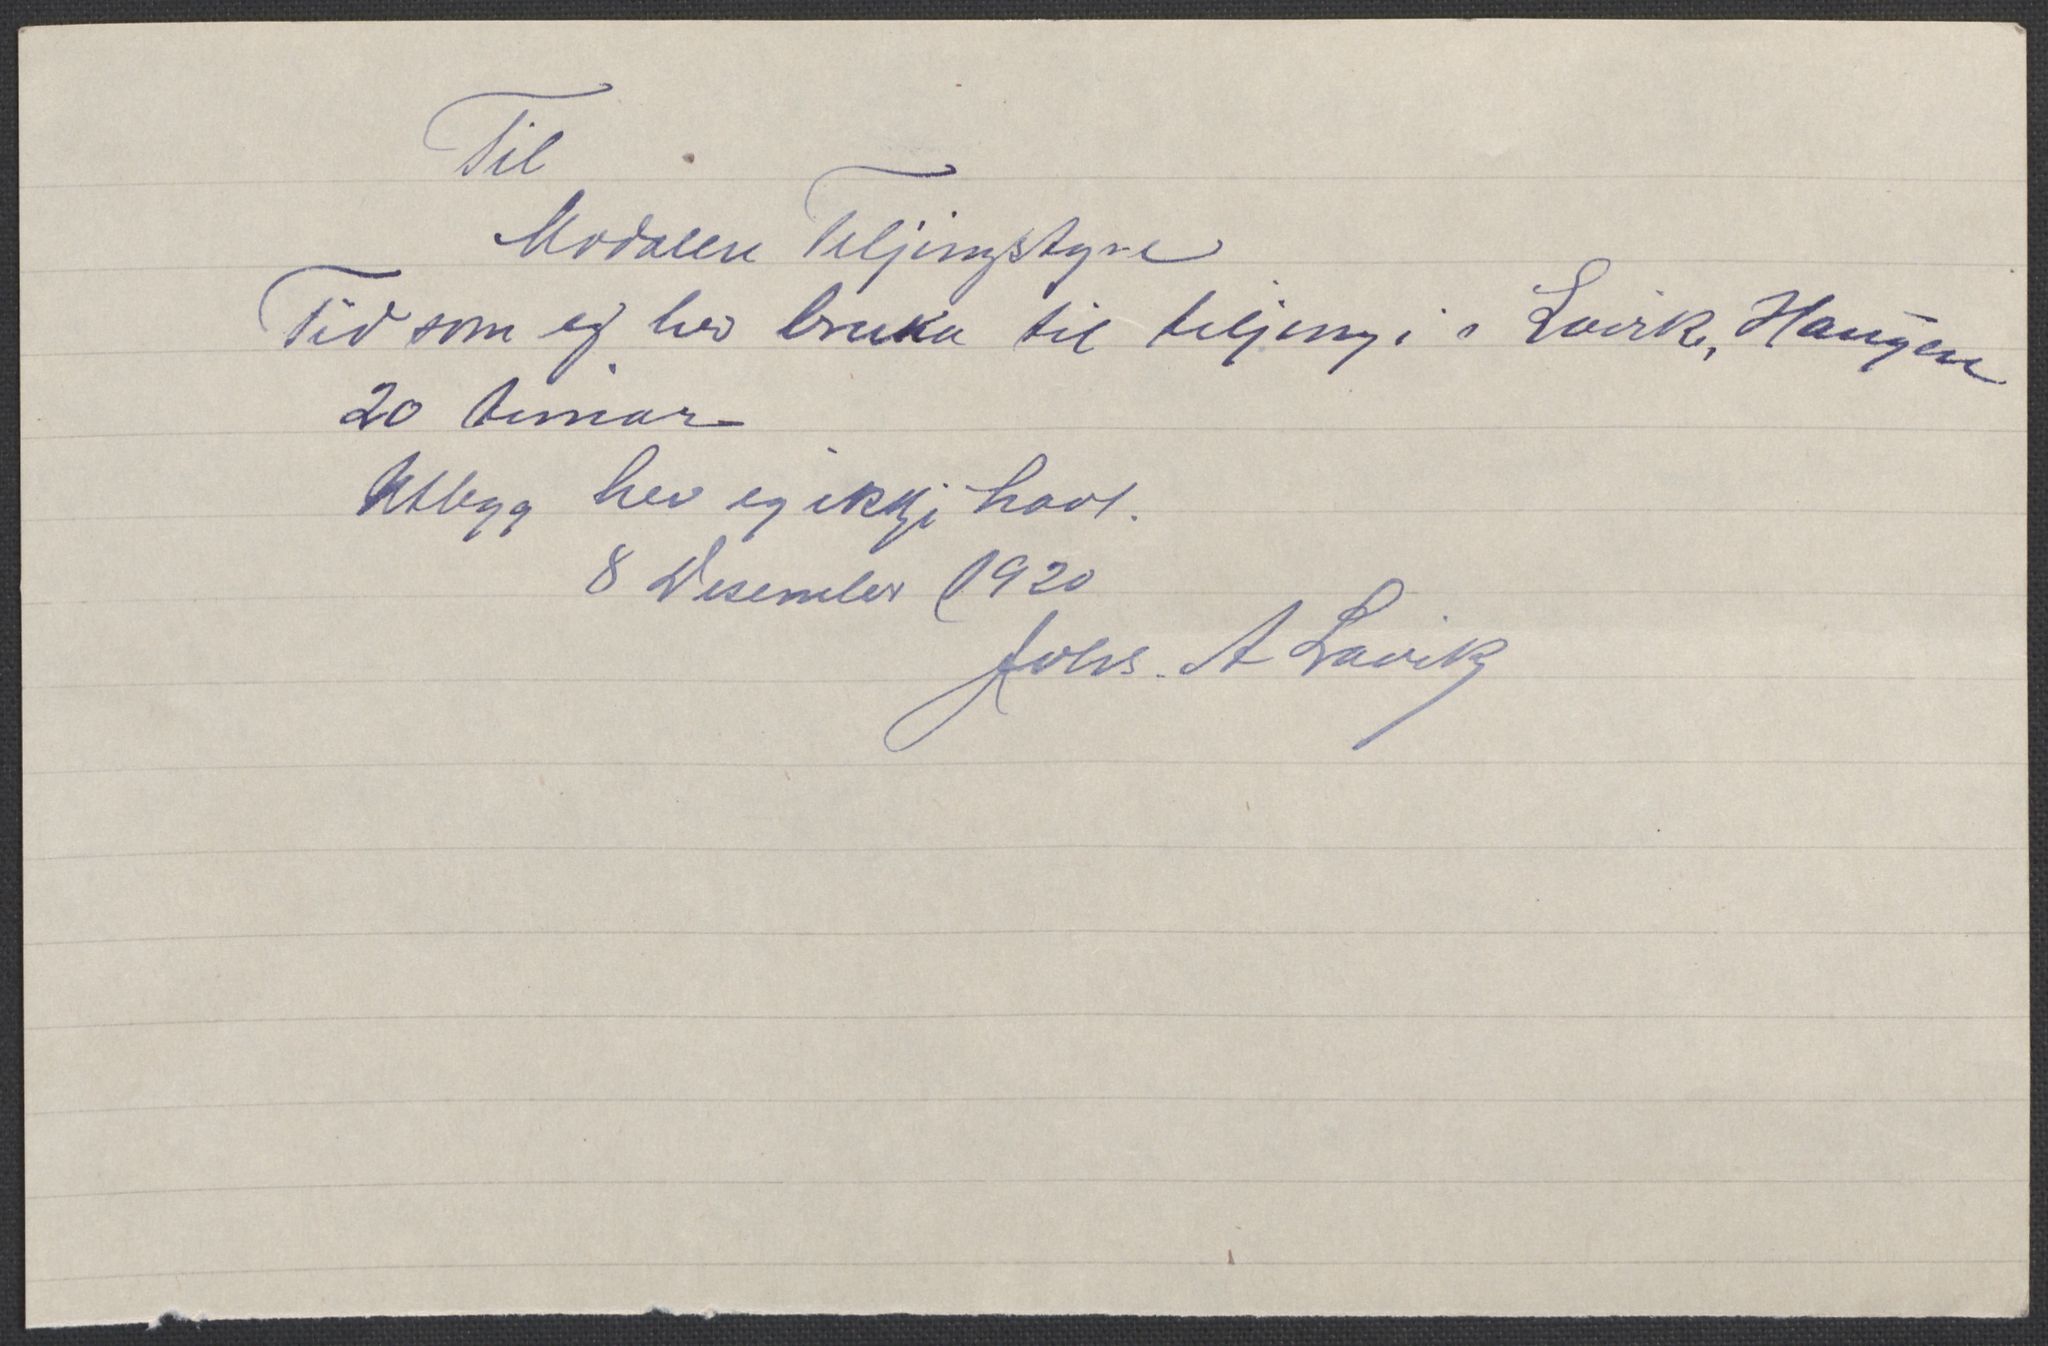 Til
Modalen Teljingstyre
Tid som eg hev bruka til teljing i Lavik, Haugen
20 timar
Utlegg hev eg ikkji havt.
8 Desember 1920
Johs. A Lavik